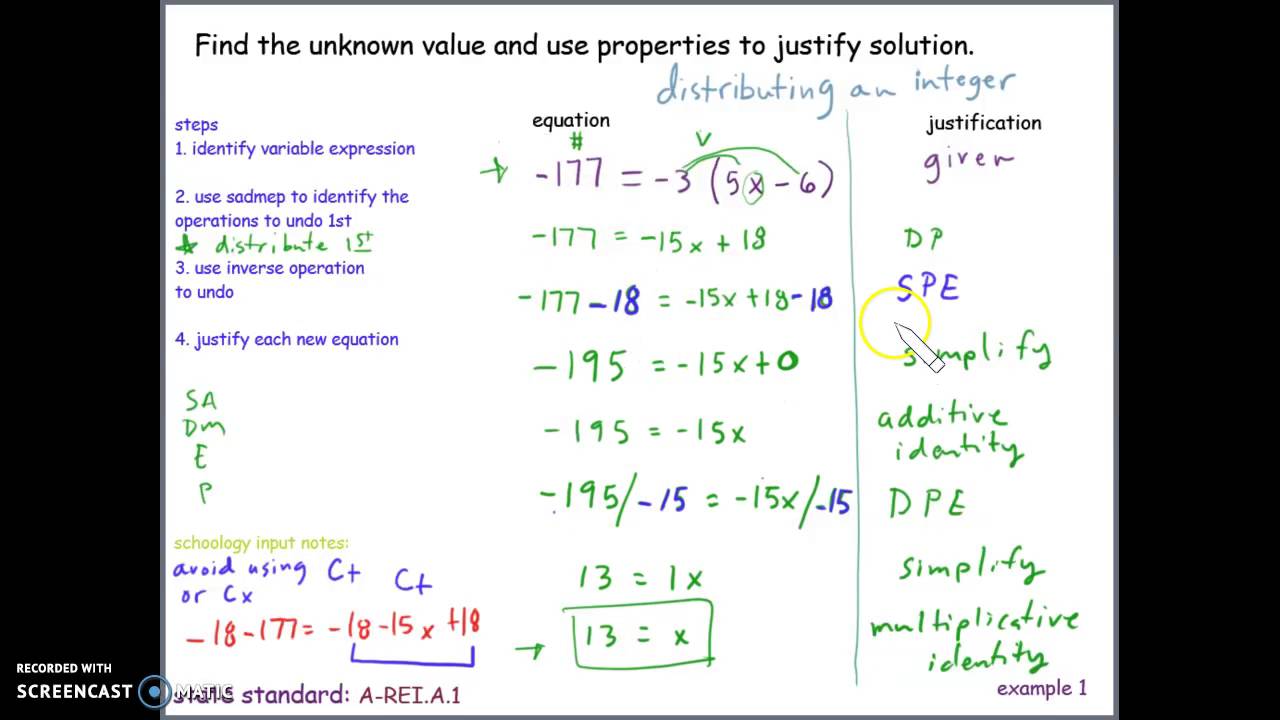 Find the unknown value and use properties to justify solution.
distributing an integer
steps
1. identify variable expression
2. use sadmep to identify the
operations to undo 1st
★ distribute 1st
3. use inverse operation
to undo
4. justify each new equation
SA
DM
E
P
schoology input notes:
avoid using C+ C+
or Cx
-18-177 = -18-15x+18
state standard: A-REI.A.1
equation
# v
→ -177 = -3(5x-6)
-177 = -15x+18
-177-18 = -15x+18-18
-195 = -15x+0
-195 = -15x
-195/-15 = -15x/-15
13 = 1x
→ 13 = x
justification
given
DP
SPE
simplify
additive
identity
DPE
simplify
multiplicative
identity
example 1
RECORDED WITH
SCREENCAST MATIC